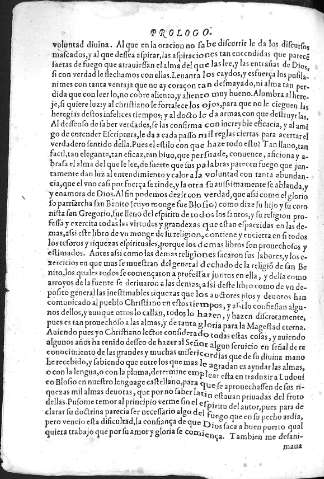 PROLOGO.
voluntad diuina. Al que en la oracion no sabe discurrir le da los discursos
mascados, y al que dessea aspirar, las aspiraciones tan encendidas que parece
saetas de fuego que atrauiessan el alma del que las lee, y las entrañas de Dios,
si con verdad le flechamos con ellas. Leuanta los caydos, y esfuerça los pusila-
nimes con tanta ventaja que no ay coraçon tan desmayado, ni alma tan per-
dida que con leerlo, no cobre aliento, y aliento muy bueno. Alumbra al here-
je, si quiere luz y al christiano le fortalece los ojos, para que no le cieguen las
heregias destos infelices tiempos; y al docto le da armas, con que destruyrlas,
Al desseoso de saber verdades, se las confirma con increyble eficacia, y al ami
go de entender Escriptura, le da a cada passo mil reglas ciertas para acertar el
verdadero sentido della. Pues el estilo con que haze todo esto? Tan llano, tan
facil, tan elegante, tan eficaz, tan biuo, que persuade, conuence, aficiona y a-
brasa el alma del que le lee, de suerte que sus palabras parecen fuego que jun-
tamente dan luz al entendimiento y calor a la voluntad con tanta abundan-
cia, que el vno casi por fuerça se rinde, y la otra suauissimamente se ablanda, y
enamora de Dios. Al fin podemos dezir con verdad, que assi como el glorio
so patriarcha san Benito (cuyo monge fue Blosio) como dize su hijo y su coro
nista san Gregorio, fue lleno del espiritu de todos los santos, y su religion pro-
fessa y exercita todas las virtudes y grandezas que estan esparcidas en las de-
mas, assi este libro de vn monge de su religion, contiene y encierra en si todos
los tesoros y riquezas espirituales, porque los demas libros son prouechosos y
estimados. Antes assi como las demas religiones sacaron sus labores, y los e-
xercicios en que mas se muestran del general dechado de la religiō de san Be
nito, los quales todos se començaron a professar juntos en ella, y della como
arroyos de la fuente se deriuaron a las demas, assi deste libro como de vn de-
posito general las inestimables riquezas que los auctores pios y deuotos han
comunicado al pueblo Christiano en estos tiempos, y assi lo confiessan algu-
nos dellos, y aunque otros lo callan, todos lo hazen, y hazen discretamente,
pues es tan prouechoso a las almas, y de tanta gloria para la Magestad eterna.
Auiendo pues yo Christiano lector considerado todas estas cosas, y auiendo
algunos años ha tenido desseo de hazer al Señor algun seruicio en señal de
conocimiento de las grandes y muchas misericordias que de su diuina mano
he recebido, y sabiendo que entre los que mas le agradan es ayudar las almas,
o con la lengua, o con la pluma, determine emplear esta en traduzir a Ludoui
co Blosio en nuestro lenguage castellano, para que se aprouechassen de sus ri-
quezas mil almas deuotas, que por no saber latin estauan priuadas del fruto
dellas. Pusome temor al principio verme sin el espiritu del autor, pues para de
clarar su doctrina parecia ser necessario algo del fuego que en su pecho ardia,
pero vencio esta dificultad, la confiança de que Dios saca a buen puerto qual
quiera trabajo que por su amor y gloria se comiença. Tambien me desani-
maua